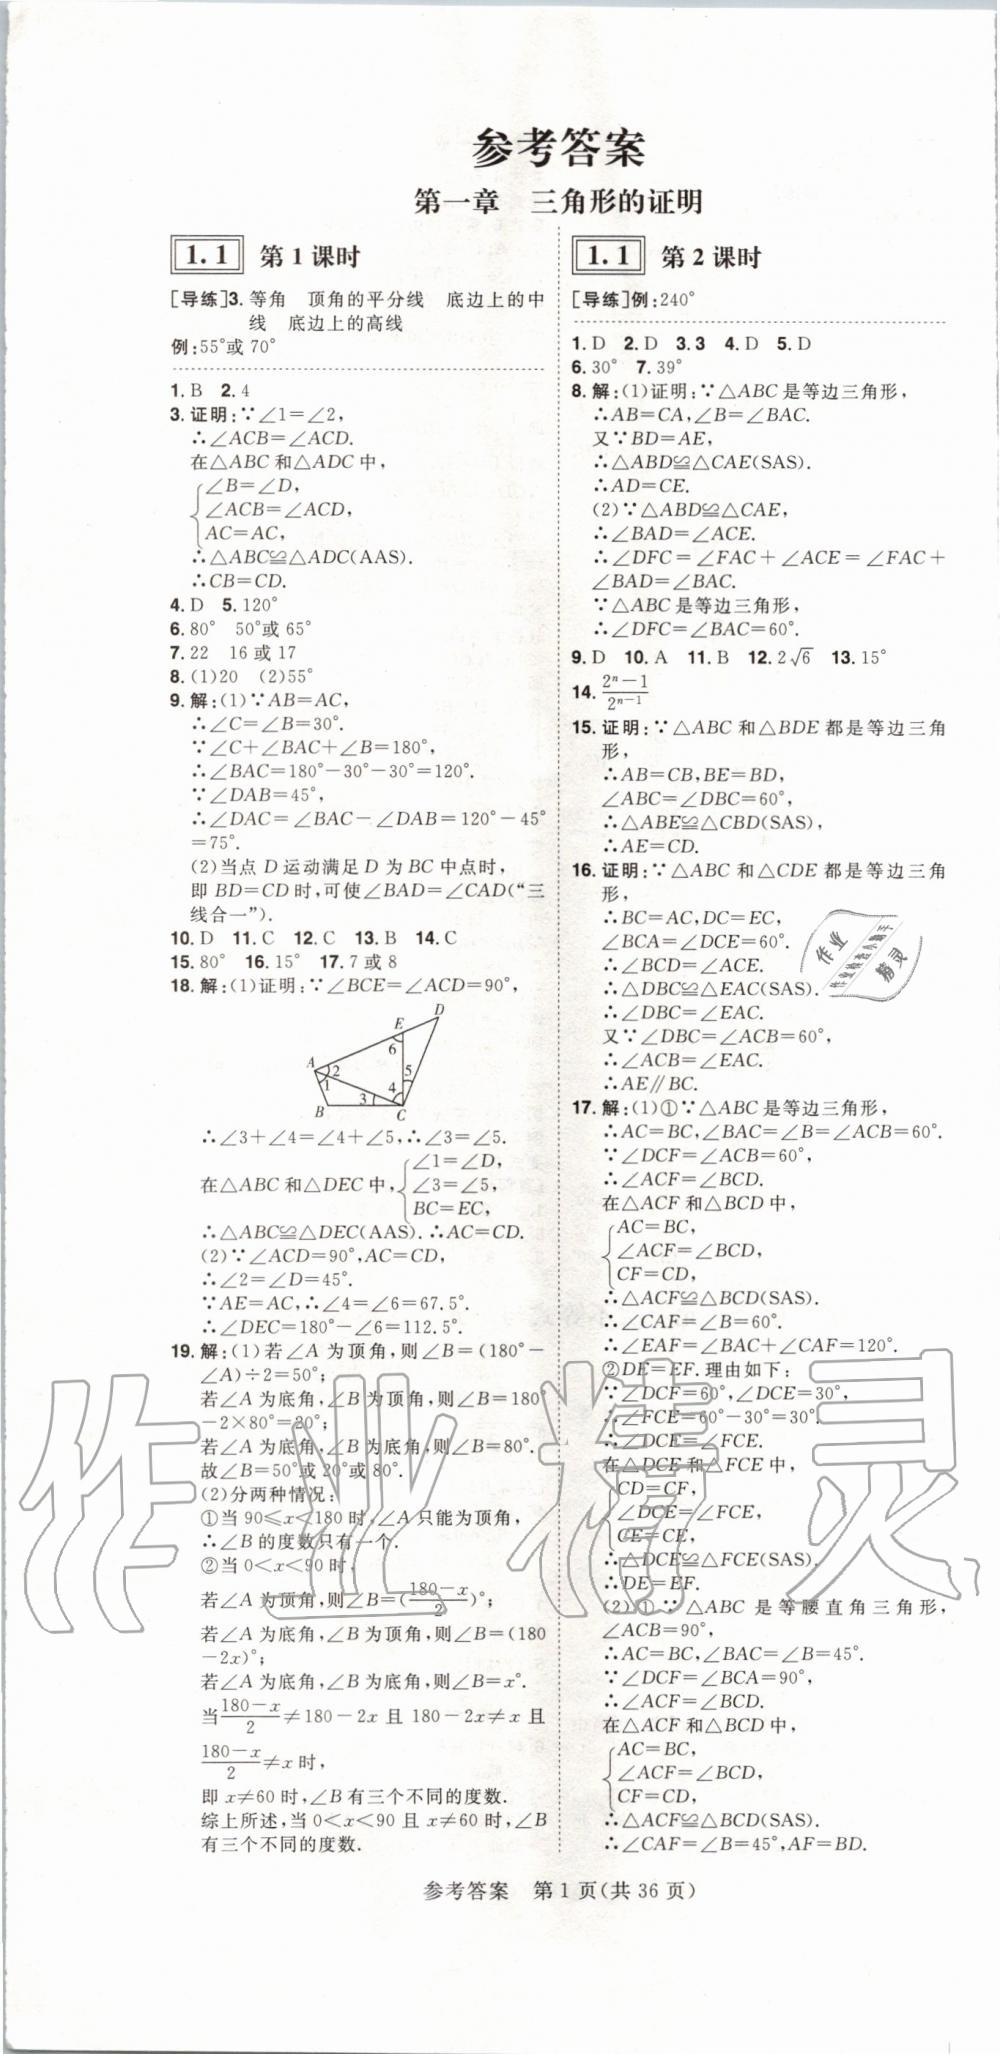 参考答案
第一章 三角形的证明
1.1 第1课时
[导练]3.等角 顶角的平分线 底边上的中
线 底边上的高线
例:55°或70°
1.B 2.4
3.证明:∵∠1=∠2,
∴∠ACB=∠ACD.
在△ABC和△ADC中,
∠B=∠D,
∠ACB=∠ACD,
AC=AC,
∴△ABC≌△ADC(AAS).
∴CB=CD.
4.D 5.120°
6.80° 50°或65°
7.22 16或17
8.(1)20 (2)55°
9.解:(1)∵AB=AC,
∴∠C=∠B=30°.
∵∠C+∠BAC+∠B=180°,
∴∠BAC=180°-30°-30°=120°.
∵∠DAB=45°,
∴∠DAC=∠BAC-∠DAB=120°-45°
=75°.
(2)当点D运动满足D为BC中点时,
即BD=CD时,可使∠BAD=∠CAD(“三
线合一”).
10.D 11.C 12.C 13.B 14.C
15.80° 16.15° 17.7或8
18.解:(1)证明:∵∠BCE=∠ACD=90°,
D
E
6
A
2
1
5
4
3
B
C
∴∠3+∠4=∠4+∠5,∴∠3=∠5.
在△ABC和△DEC中,
∠1=∠D,
∠3=∠5,
BC=EC,
∴△ABC≌△DEC(AAS).∴AC=CD.
(2)∵∠ACD=90°,AC=CD,
∴∠2=∠D=45°.
∵AE=AC,∴∠4=∠6=67.5°.
∴∠DEC=180°-∠6=112.5°.
19.解:(1)若∠A为顶角,则∠B=(180°-
∠A)÷2=50°;
若∠A为底角,∠B为顶角,则∠B=180°
-2×80°=20°;
若∠A为底角,∠B为底角,则∠B=80°.
故∠B=50°或20°或80°.
(2)分两种情况:
①当90≤x<180时,∠A只能为顶角,
∴∠B的度数只有一个.
②当0<x<90时,
若∠A为顶角,则∠B=(\frac{180-x}{2})°;
若∠A为底角,∠B为顶角,则∠B=(180
-2x)°;
若∠A为底角,∠B为底角,则∠B=x°.
当\frac{180-x}{2}≠180-2x且180-2x≠x且
\frac{180-x}{2}≠x时,
即x≠60时,∠B有三个不同的度数.
综上所述,当0<x<90且x≠60时,∠B
有三个不同的度数.
1.1 第2课时
[导练]例:240°
1.D 2.D 3.3 4.D 5.D
6.30° 7.39°
8.解:(1)证明:∵△ABC是等边三角形,
∴AB=CA,∠B=∠BAC.
又∵BD=AE,
∴△ABD≌△CAE(SAS).
∴AD=CE.
(2)∵△ABD≌△CAE,
∴∠BAD=∠ACE.
∴∠DFC=∠FAC+∠ACE=∠FAC+
∠BAD=∠BAC.
∵△ABC是等边三角形,
∴∠DFC=∠BAC=60°.
9.D 10.A 11.B 12.2√6 13.15°
14.\frac{2^n-1}{2^{n-1}}
15.证明:∵△ABC和△BDE都是等边三角
形,
∴AB=CB,BE=BD,
∠ABC=∠DBC=60°,
∴△ABE≌△CBD(SAS),
∴AE=CD.
16.证明:∵△ABC和△CDE都是等边三角
形,
∴BC=AC,DC=EC,
∠BCA=∠DCE=60°.
∴∠BCD=∠ACE.
∴△DBC≌△EAC(SAS).
∴∠DBC=∠EAC.
又∵∠DBC=∠ACB=60°,
∴∠ACB=∠EAC.
∴AE∥BC.
17.解:(1)①∵△ABC是等边三角形,
∴AC=BC,∠BAC=∠B=∠ACB=60°.
∵∠DCF=∠ACB=60°,
∴∠ACF=∠BCD.
在△ACF和△BCD中,
AC=BC,
∠ACF=∠BCD,
CF=CD,
∴△ACF≌△BCD(SAS).
∴∠CAF=∠B=60°.
∴∠EAF=∠BAC+∠CAF=120°.
②DE=EF.理由如下:
∵∠DCF=60°,∠DCE=30°,
∴∠FCE=60°-30°=30°.
∴∠DCE=∠FCE.
在△DCE和△FCE中,
CD=CF,
∠DCE=∠FCE,
CE=CE,
∴△DCE≌△FCE(SAS).
∴DE=EF.
(2)①∵△ABC是等腰直角三角形,
∠ACB=90°,
∴AC=BC,∠BAC=∠B=45°.
∵∠DCF=∠BCA=90°,
∴∠ACF=∠BCD.
在△ACF和△BCD中,
AC=BC,
∠ACF=∠BCD,
CF=CD,
∴△ACF≌△BCD(SAS).
∴∠CAF=∠B=45°,AF=BD.
参考答案 第1页(共36页)
作业精灵
作业
作业检查小助手
精灵